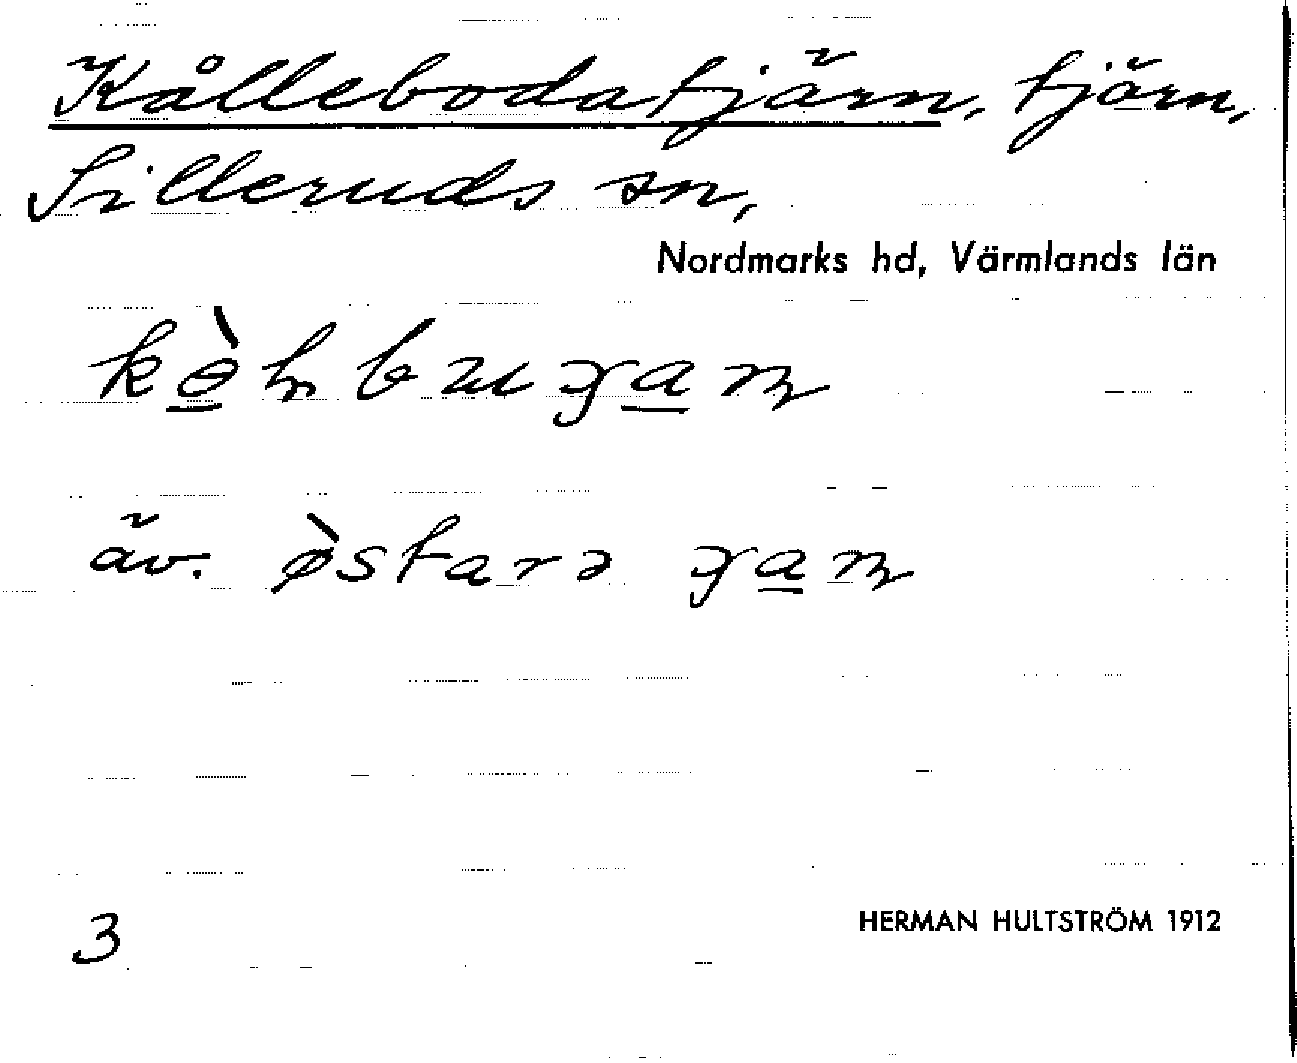 Kålleboda tjärn, tjärn,
Silleruds sn,
Nordmarks hd, Värmlands län
äv.
3
HERMAN HULTSTRÖM 1912